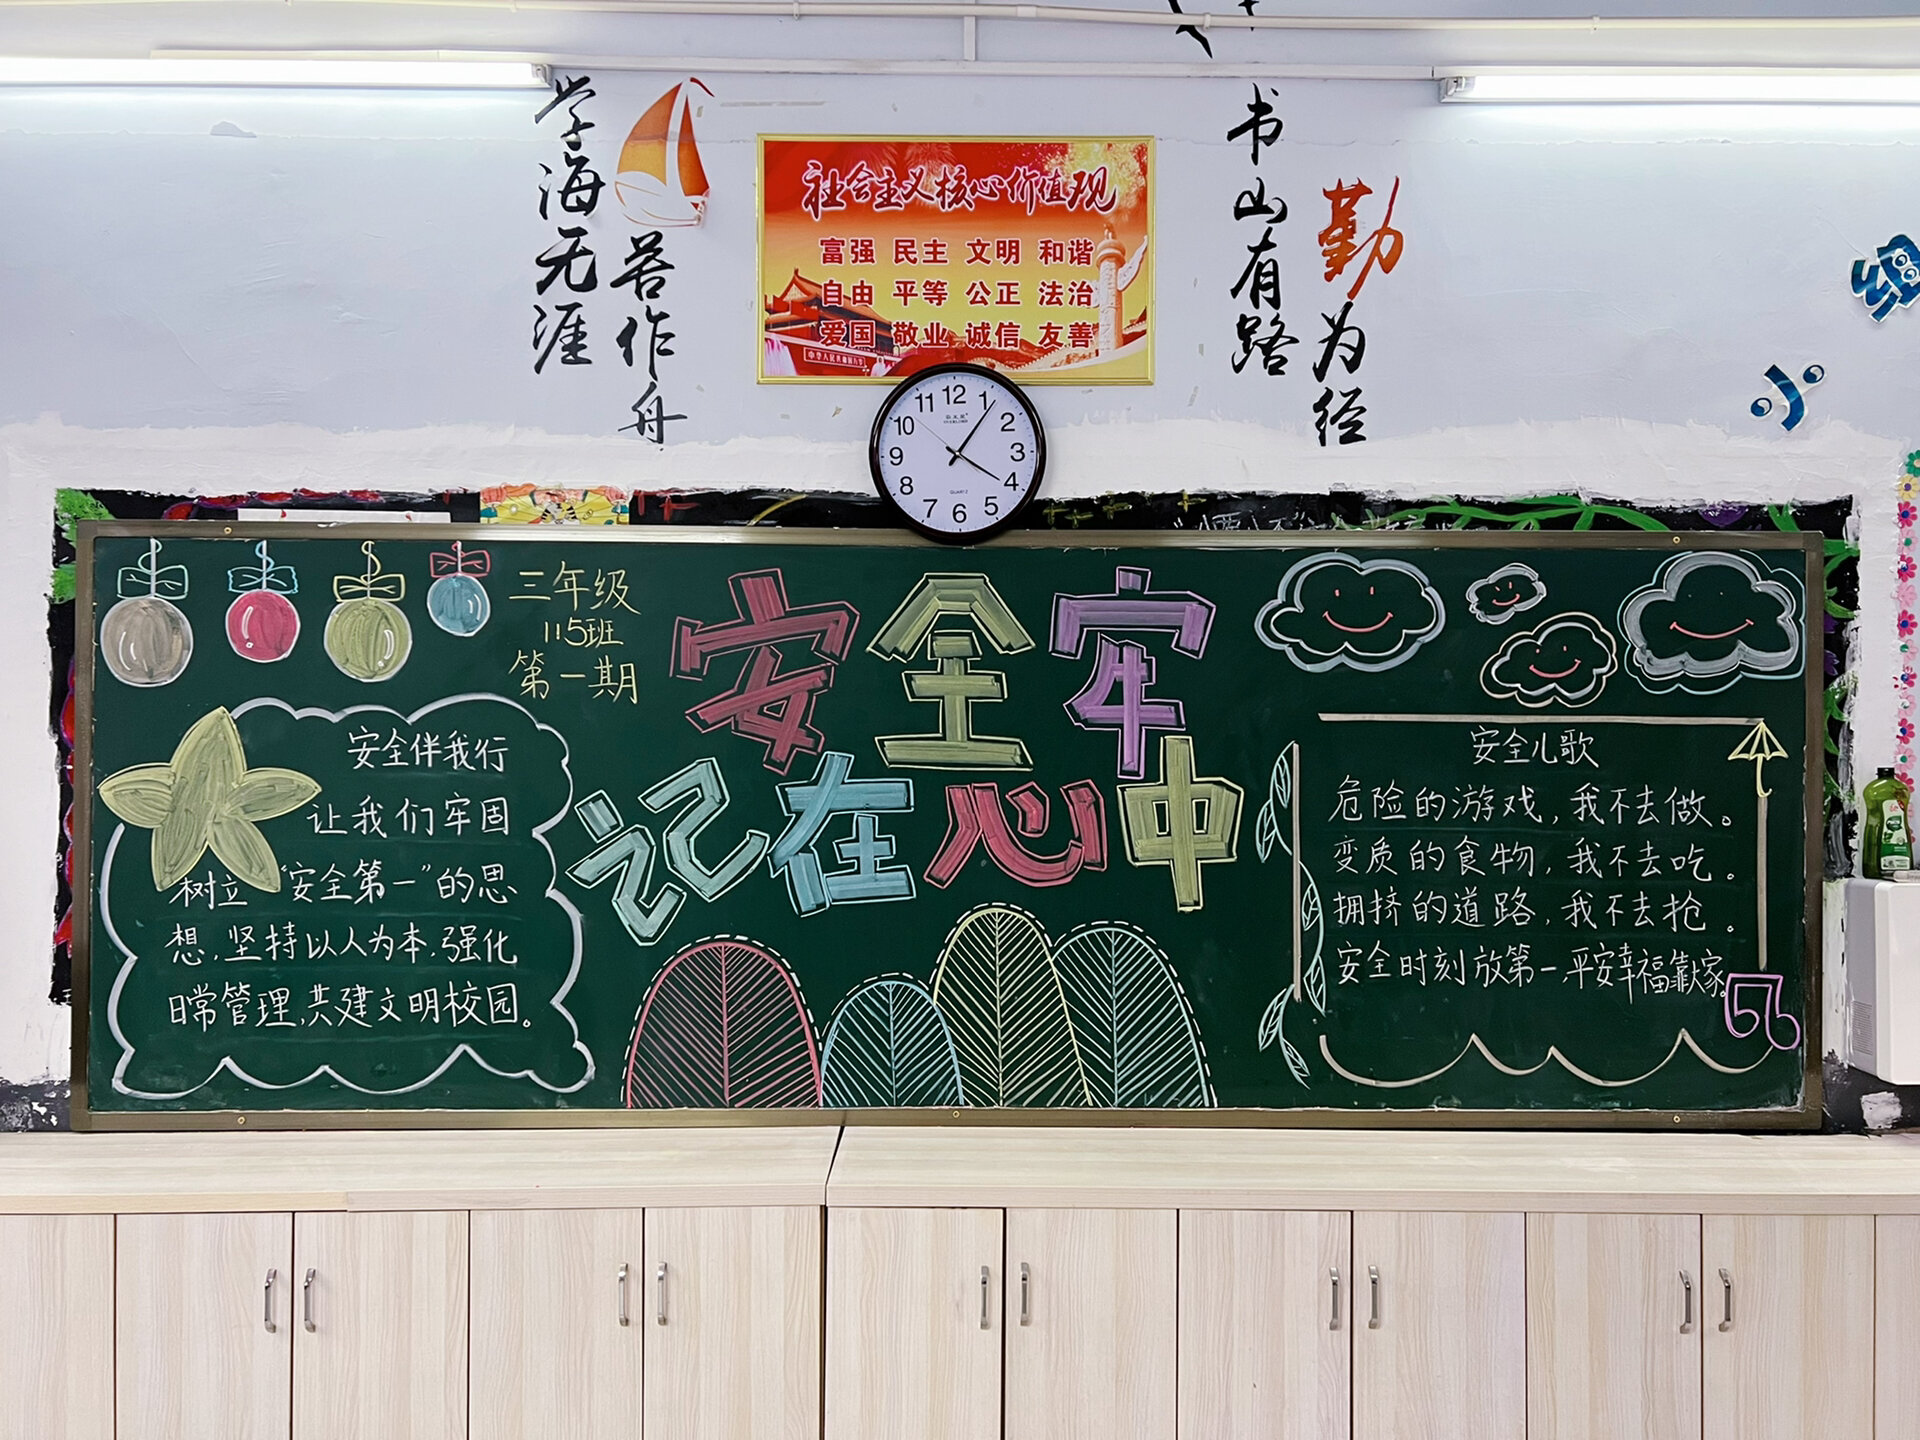 学海无涯
苦作舟
社会主义核心价值观
富强 民主 文明 和谐
自由 平等 公正 法治
爱国 敬业 诚信 友善
书山有路
勤为径
组
小
12
1
2
3
4
5
6
7
8
9
10
11
QUARTZ
三年级
115班
第一期
安全牢
记在心中
安全伴我行
让我们牢固
树立“安全第一”的思
想,坚持以人为本,强化
日常管理,共建文明校园。
安全儿歌
危险的游戏,我不去做。
变质的食物,我不去吃。
拥挤的道路,我不去抢。
安全时刻放第一,平安幸福靠大家。